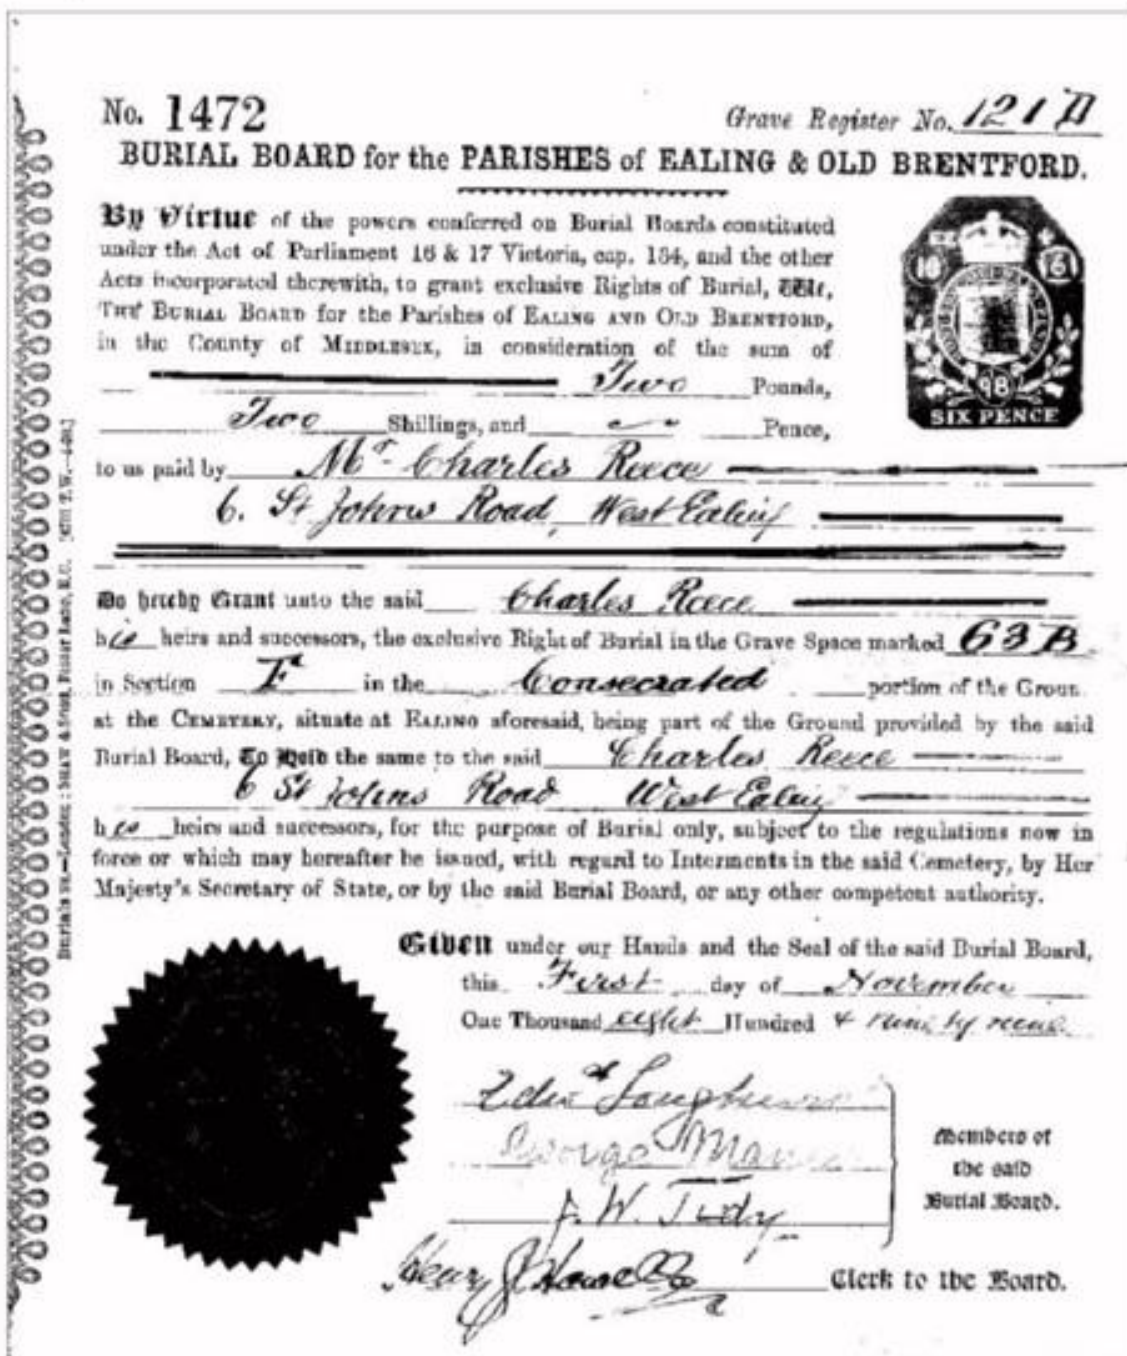 No. 1472
Grave Register No. 121 D
BURIAL BOARD for the PARISHES of EALING & OLD BRENTFORD.
By Virtue of the powers conferred on Burial Boards constituted
under the Act of Parliament 16 & 17 Victoria, cap. 134, and the other
Acts incorporated therewith, to grant exclusive Rights of Burial, We,
THE BURIAL BOARD for the Parishes of EALING AND OLD BRENTFORD,
in the County of MIDDLESEX, in consideration of the sum of
Two Pounds,
Two Shillings, and Pence,
to us paid by Mr. Charles Reece
6. St Johns Road, West Ealing
Do hereby Grant unto the said Charles Reece
his heirs and successors, the exclusive Right of Burial in the Grave Space marked 63 B
in Section F in the Consecrated portion of the Groun
at the CEMETERY, situate at EALING aforesaid, being part of the Ground provided by the said
Burial Board, To Hold the same to the said Charles Reece
6 St Johns Road West Ealing
his heirs and successors, for the purpose of Burial only, subject to the regulations now in
force or which may hereafter be issued, with regard to Interments in the said Cemetery, by Her
Majesty's Secretary of State, or by the said Burial Board, or any other competent authority.
Given under our Hands and the Seal of the said Burial Board,
this First day of November
One Thousand eight Hundred & ninety nine
George
J. W. Tidy
Members of
the said
Burial Board.
Henry J Howell
Clerk to the Board.
98
SIX PENCE
London: SHAW & SONS, Fetter Lane, E.C.